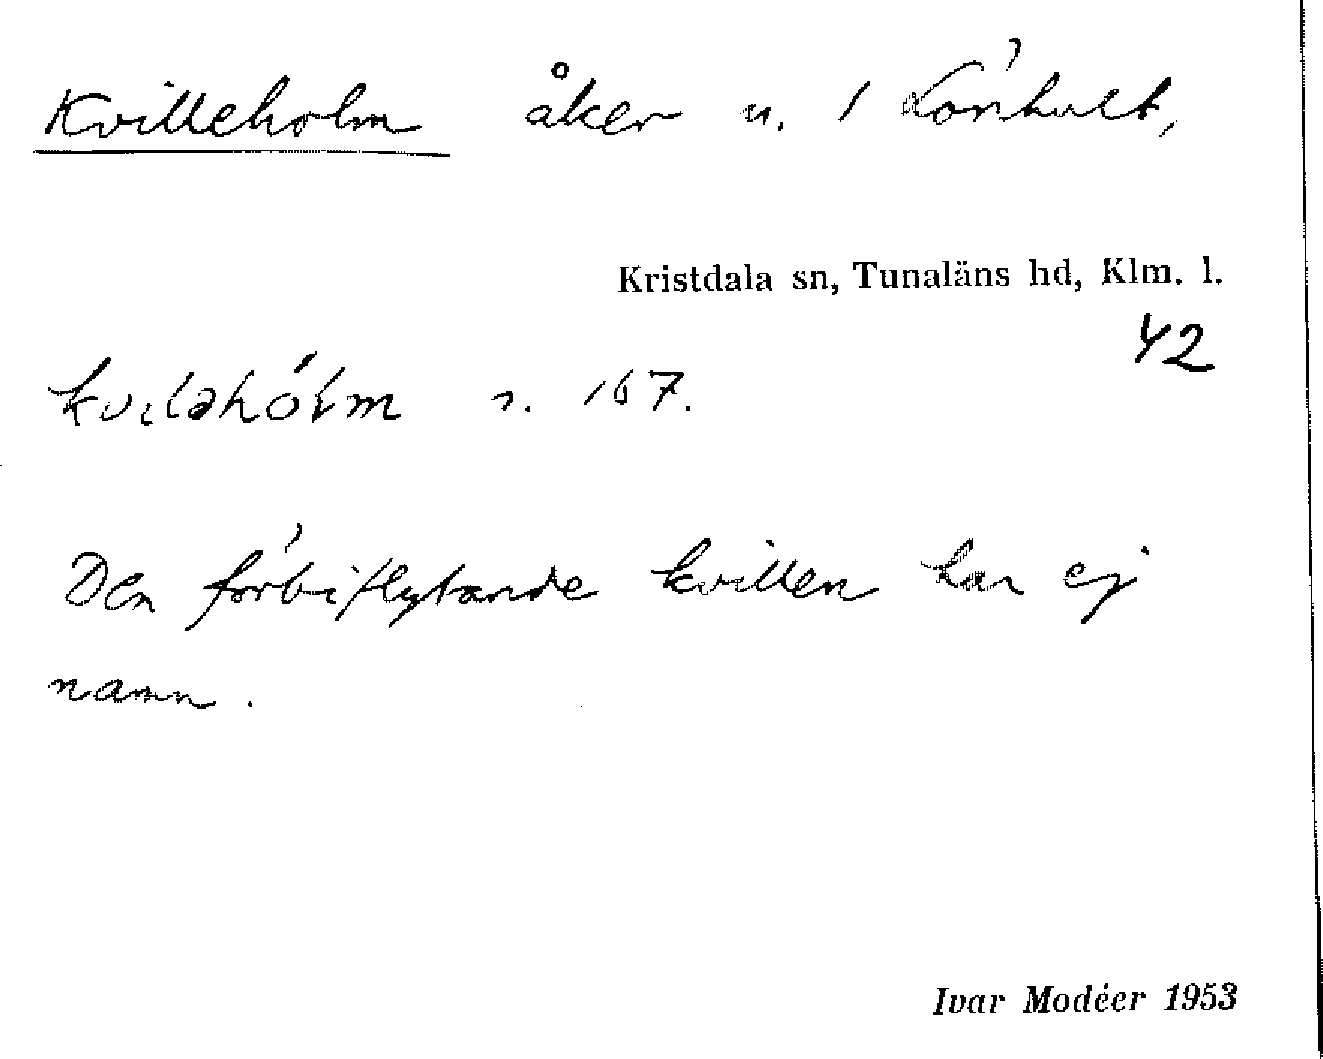 Kvilleholm åker u. 1 Lönhult,
Kristdala sn, Tunaläns hd, Klm. l.
42
kviləhólm s. 167.
Den förbiflytande kvillen har ej
namn.
Ivar Modéer 1953